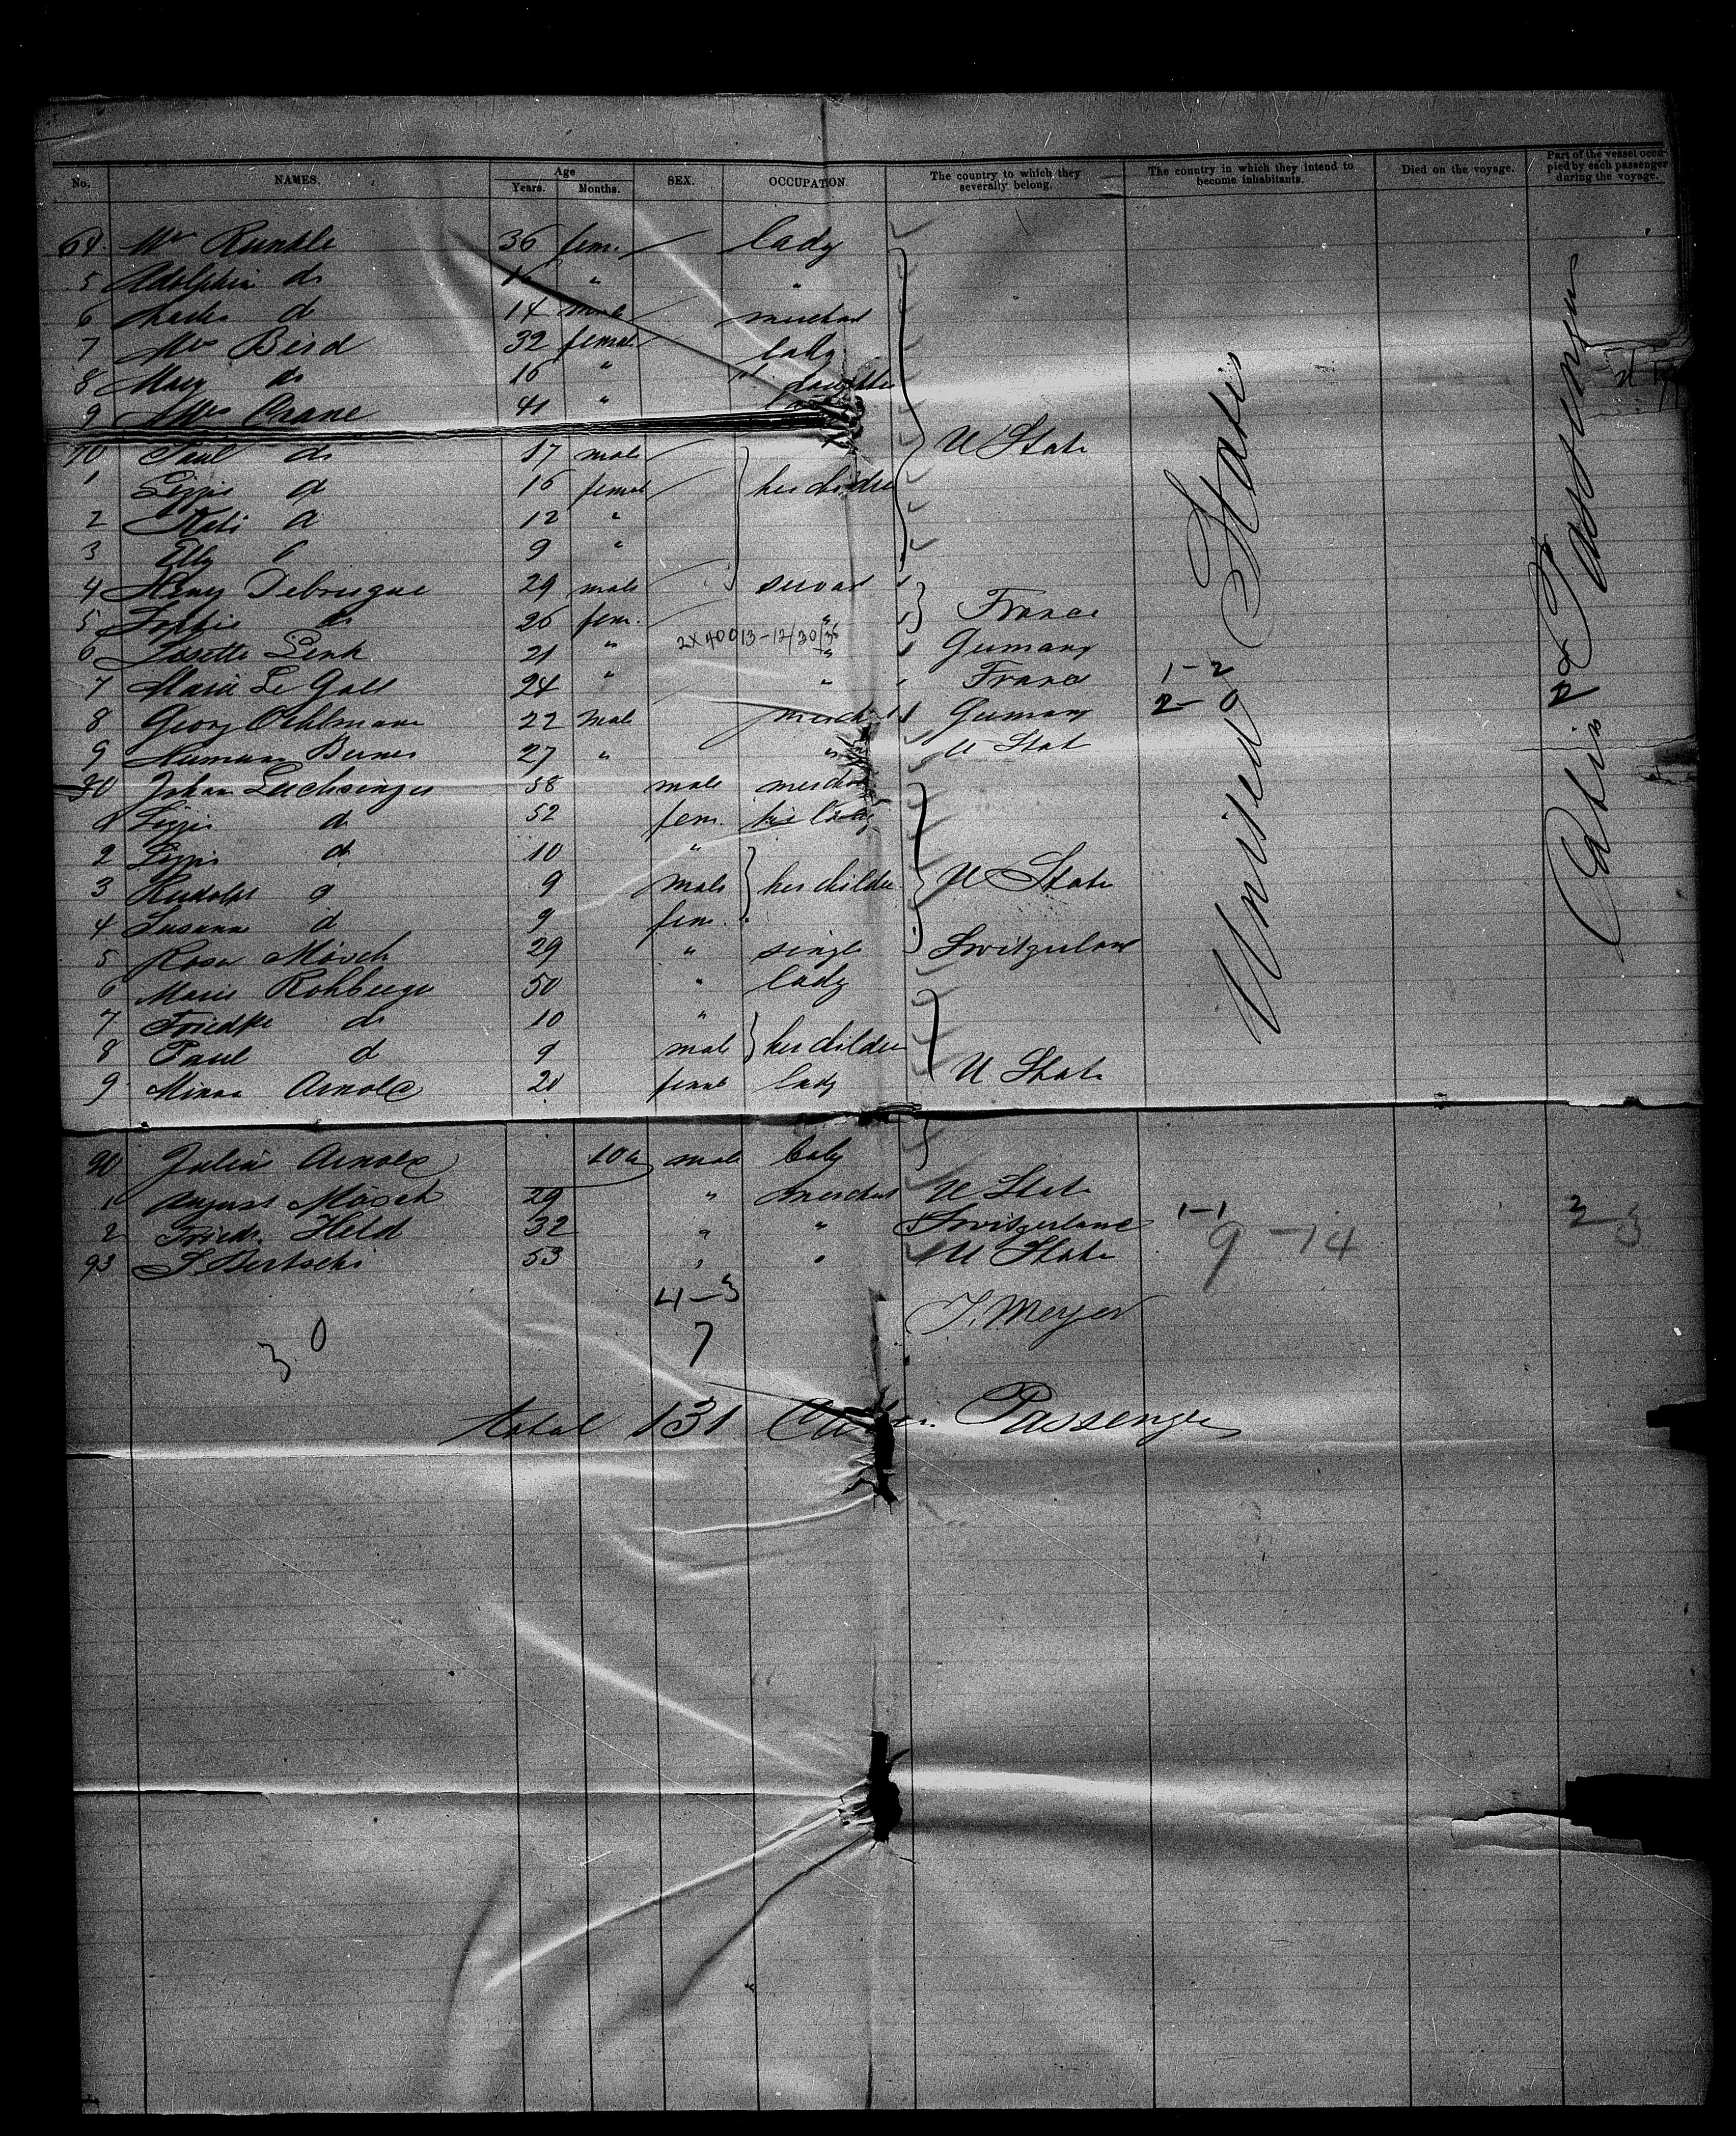 No. NAMES. Age Years. Months. SEX. OCCUPATION. The country to which they severally belong. The country in which they intend to become inhabitants. Died on the voyage. Part of the vessel occupied by each passenger during the voyage.
64 Mrs Runkle 36 fem. lady
5 Adolphin do "  "
6 do 14 male
7 Mrs Bird 32 female lady
8 Mary do 16 " daughter
9 Mrs Crane 41 "
70 Paul do 17 male U State
1 Lizzie d 16 female her children
2 Kati d 12 "
3 Elly d 9 "
4 Henry Debrugue 29 male servant
5 Sophie do 26 fem. " France
2X40013-12/30/36
6 Josette Lenk 21 " " Germany
7 Marie Le Gall 24 " " France 1-2
8 Georg Oehlmann 22 male merchant Germany 2-0
9 Herman Bernes 27 " " U State
80 Johan Luchsinger 58 male merchant
1 Lizzie do 52 fem. his lady
2 Lizzie do 10 "
3 Rudolph d 9 male her children U State
4 Susanna d 9 fem.
5 Rosa Mösch 29 " single Switzerland
6 Marie Rohberge 50 " lady
7 Friedke do 10 "
8 Paul d 9 male her children
9 Minna Arnold 20 female lady U State
90 Julius Arnold 10 male baby
1 August Mösch 29 " merchant U State
2 Friedr. Held 32 " " Switzerland 1-1
93 J. Bertschi 53 " " U State 9-14
United States
2d Cabin Passengers
2-3
4-3
7
J. Meyer
30
total 131 Cabin Passenger